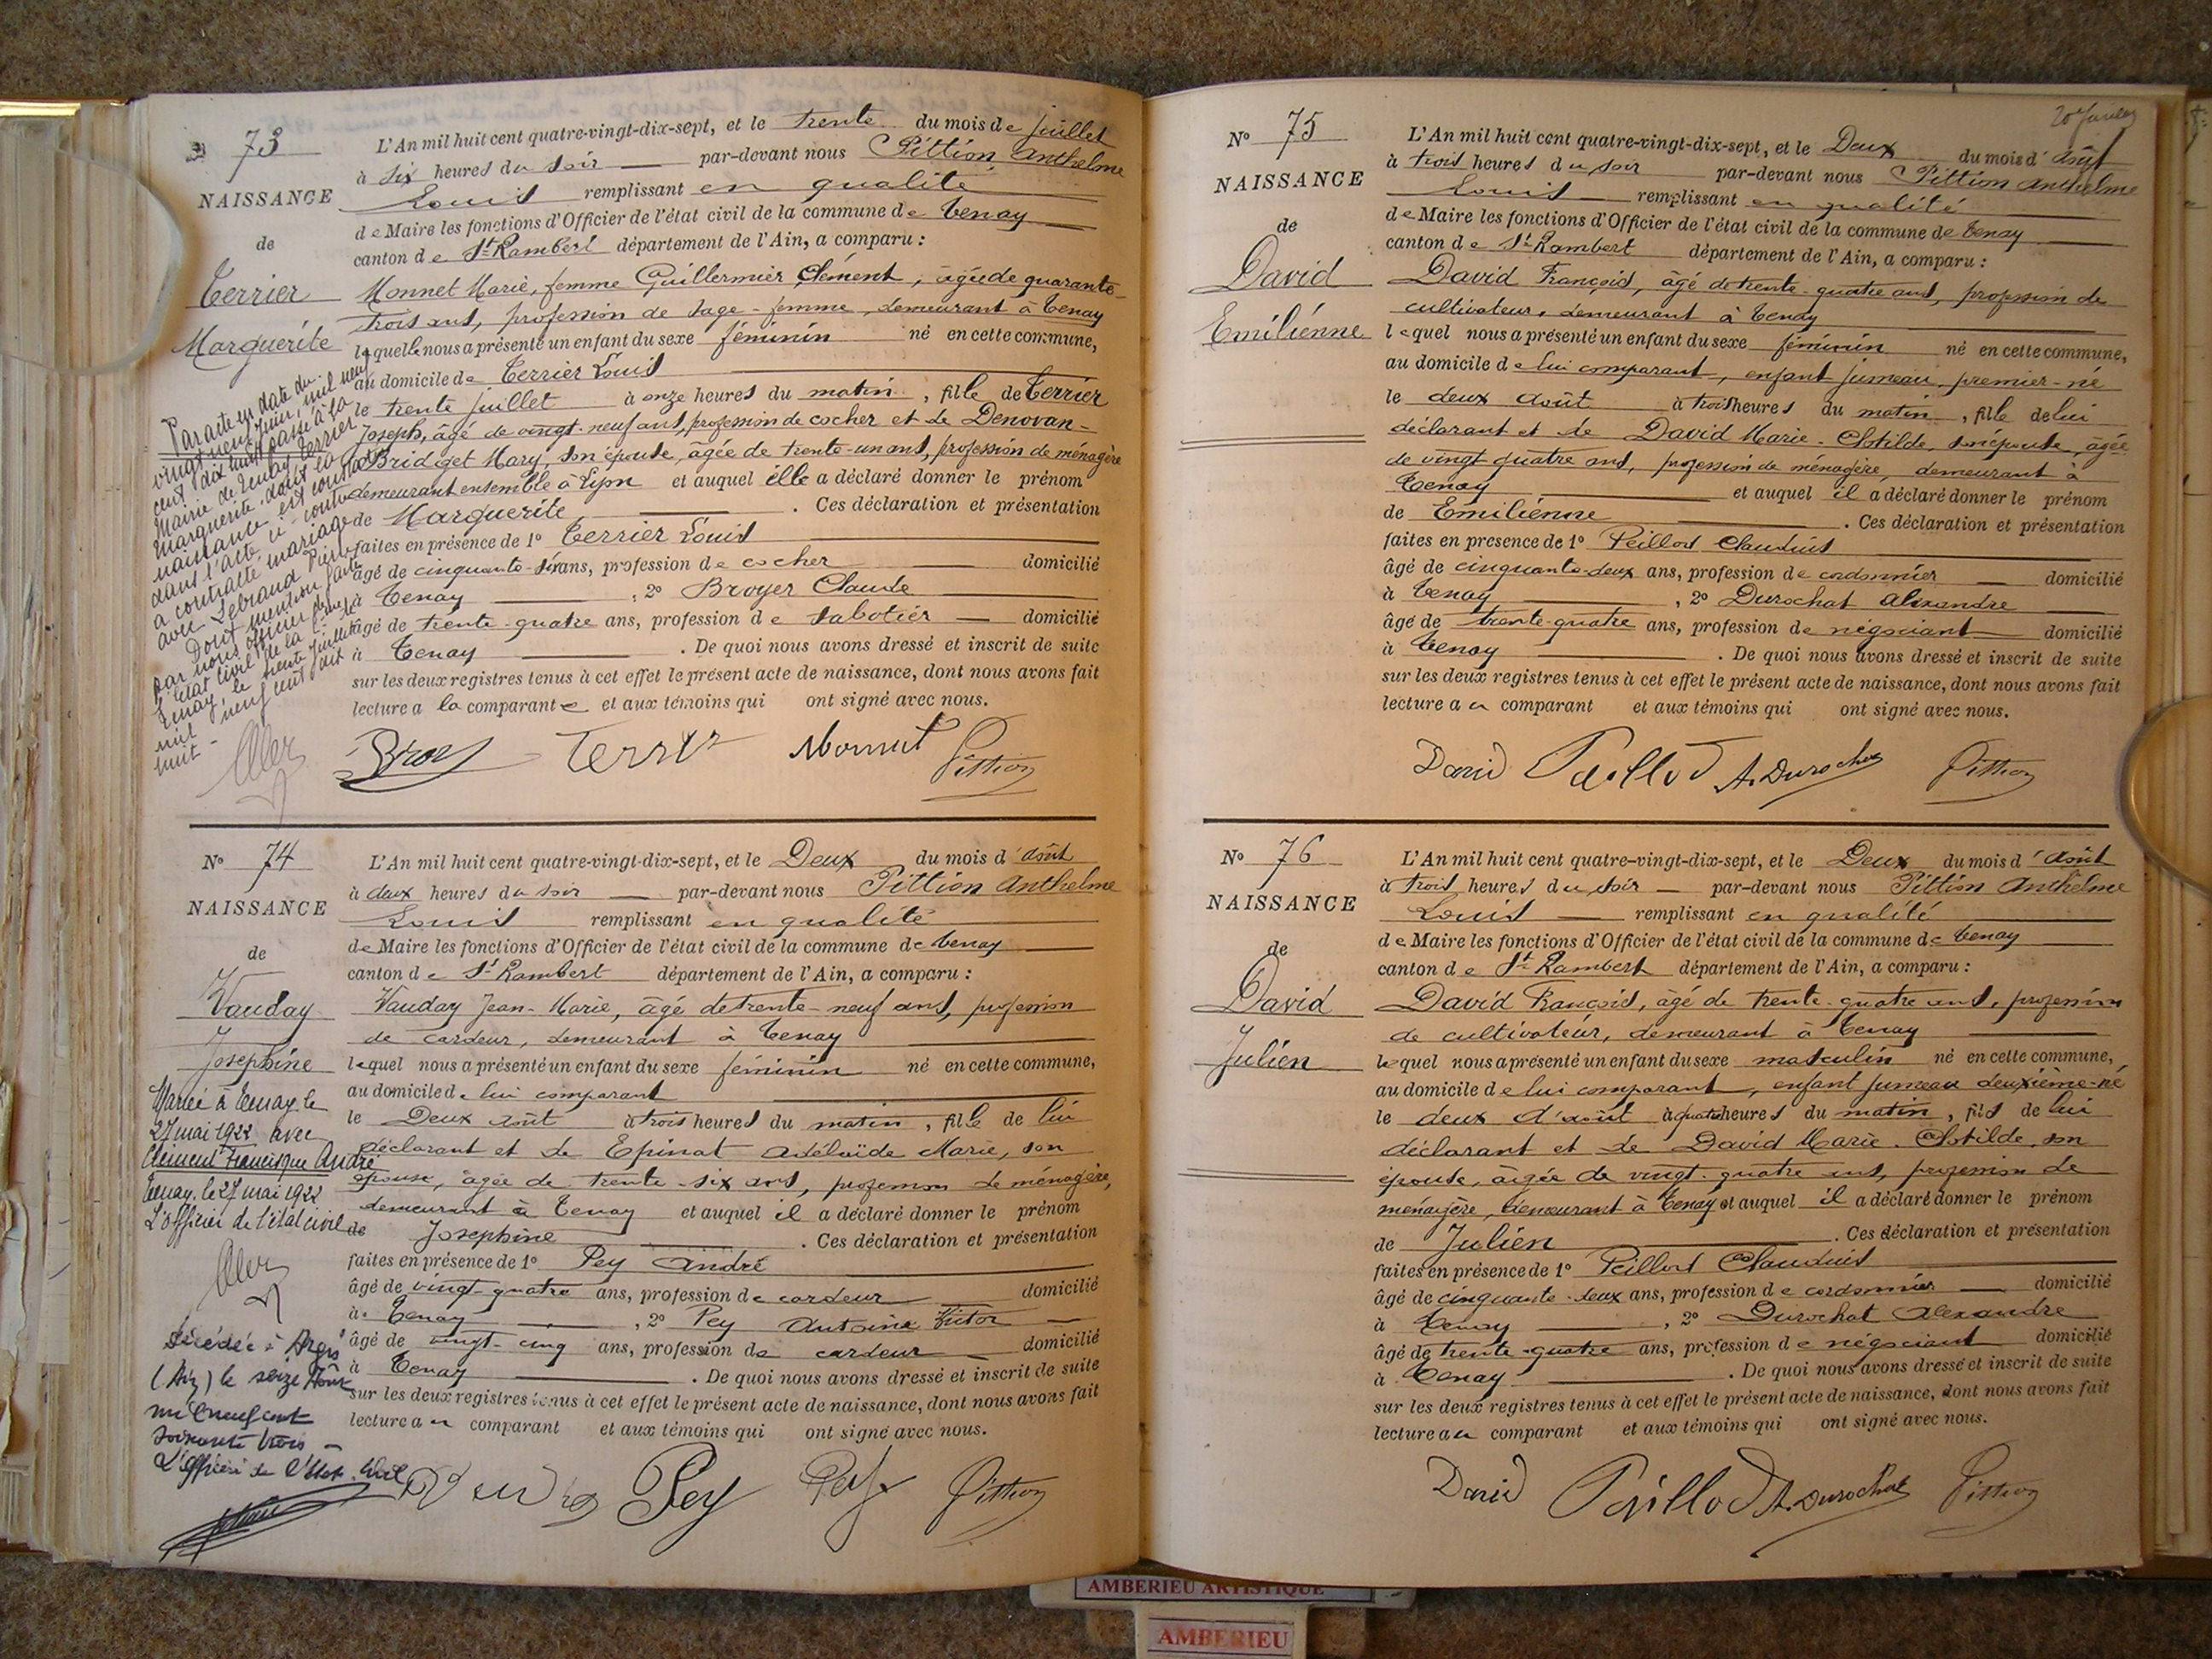 73
NAISSANCE
de
Terrier
Marguerite
L'An mil huit cent quatre-vingt-dix-sept, et le trente du mois de juillet
à six heures du soir par-devant nous Pittion Anthelme
Louis remplissant en qualité
de Maire les fonctions d'Officier de l'état civil de la commune de Tenay
canton de St Rambert département de l'Ain, a comparu :
Monnet Marie, femme Guillermier Clément, âgée de quarante-
trois ans, profession de sage-femme, demeurant à Tenay
laquelle nous a présenté un enfant du sexe féminin né en cette commune,
au domicile de Terrier Louis
le trente juillet à onze heures du matin, fille de Terrier
Joseph, âgé de vingt-neuf ans, profession de cocher et de Denovan-
Bridget Mary, son épouse, âgée de trente-un ans, profession de ménagère
demeurant ensemble à Lyon et auquel elle a déclaré donner le prénom
de Marguerite . Ces déclaration et présentation
faites en présence de 1° Terrier Louis
âgé de cinquante-six ans, profession de cocher domicilié
à Tenay , 2° Broyer Claude
âgé de trente-quatre ans, profession de sabotier domicilié
à Tenay . De quoi nous avons dressé et inscrit de suite
sur les deux registres tenus à cet effet le présent acte de naissance, dont nous avons fait
lecture a la comparante et aux témoins qui ont signé avec nous.
Par acte en date du
vingt neuf juin, mil neuf
cent dix huit passé à la
Mairie de Tenay, Terrier
Marguerite dont la
naissance est constatée
dans l'acte ci-contre
a contracté mariage
avec Lebrand Pierre
Dont mention faite
par nous officier de
l'état civil de la Cne de
Tenay, le trente juin
mil neuf cent dix
huit -
Terrier Monnet Pittion
N° 74
NAISSANCE
de
Vauday
Josephine
L'An mil huit cent quatre-vingt-dix-sept, et le Deux du mois d'août
à deux heures du soir par-devant nous Pittion Anthelme
Louis remplissant en qualité
de Maire les fonctions d'Officier de l'état civil de la commune de Tenay
canton de St Rambert département de l'Ain, a comparu :
Vauday Jean-Marie, âgé de trente-neuf ans, profession
de cardeur, demeurant à Tenay
lequel nous a présenté un enfant du sexe féminin né en cette commune,
au domicile de lui comparant
le Deux août à trois heures du matin, fille de lui
déclarant et de Epinat Adélaïde Marie, son
épouse, âgée de trente-six ans, profession de ménagère,
demeurant à Tenay et auquel il a déclaré donner le prénom
de Josephine . Ces déclaration et présentation
faites en présence de 1° Pey André
âgé de vingt-quatre ans, profession de cardeur domicilié
à Tenay , 2° Pey Antoine Victor
âgé de vingt-cinq ans, profession de cardeur domicilié
à Tenay . De quoi nous avons dressé et inscrit de suite
sur les deux registres tenus à cet effet le présent acte de naissance, dont nous avons fait
lecture au comparant et aux témoins qui ont signé avec nous.
Mariée à Tenay le
27 mai 1922 avec
Clément Francisque André
Tenay, le 27 mai 1922
L'officier de l'état civil
Décédée à Argis
(Ain) le seize Août
mil neuf cent
soixante trois -
L'officier de l'Etat Civil
Pey Pey Pittion
20 Juillet
N° 75
NAISSANCE
de
David
Emilienne
L'An mil huit cent quatre-vingt-dix-sept, et le Deux du mois d'août
à trois heures du soir par-devant nous Pittion Anthelme
Louis remplissant en qualité
de Maire les fonctions d'Officier de l'état civil de la commune de Tenay
canton de St Rambert département de l'Ain, a comparu :
David François, âgé de trente-quatre ans, profession de
cultivateur, demeurant à Tenay
lequel nous a présenté un enfant du sexe féminin né en cette commune,
au domicile de lui comparant, enfant jumeau, premier-né
le deux août à trois heures du matin, fille de lui
déclarant et de David Marie-Clotilde, son épouse, âgée
de vingt quatre ans, profession de ménagère, demeurant à
Tenay et auquel il a déclaré donner le prénom
de Emilienne . Ces déclaration et présentation
faites en présence de 1° Peillod Claudius
âgé de cinquante-deux ans, profession de cordonnier domicilié
à Tenay , 2° Durochat Alexandre
âgé de trente-quatre ans, profession de négociant domicilié
à Tenay . De quoi nous avons dressé et inscrit de suite
sur les deux registres tenus à cet effet le présent acte de naissance, dont nous avons fait
lecture au comparant et aux témoins qui ont signé avec nous.
David Peillod A. Durochat Pittion
N° 76
NAISSANCE
de
David
Julien
L'An mil huit cent quatre-vingt-dix-sept, et le Deux du mois d'août
à trois heures du soir par-devant nous Pittion Anthelme
Louis remplissant en qualité
de Maire les fonctions d'Officier de l'état civil de la commune de Tenay
canton de St Rambert département de l'Ain, a comparu :
David François, âgé de trente-quatre ans, profession
de cultivateur, demeurant à Tenay
lequel nous a présenté un enfant du sexe masculin né en cette commune,
au domicile de lui comparant, enfant jumeau deuxième-né
le deux d'août à quatre heures du matin, fils de lui
déclarant et de David Marie-Clotilde, son
épouse, âgée de vingt-quatre ans, profession de
ménagère, demeurant à Tenay et auquel il a déclaré donner le prénom
de Julien . Ces déclaration et présentation
faites en présence de 1° Peillod Claudius
âgé de cinquante-deux ans, profession de cordonnier domicilié
à Tenay , 2° Durochat Alexandre
âgé de trente-quatre ans, profession de négociant domicilié
à Tenay . De quoi nous avons dressé et inscrit de suite
sur les deux registres tenus à cet effet le présent acte de naissance, dont nous avons fait
lecture au comparant et aux témoins qui ont signé avec nous.
David Peillod A. Durochat Pittion
AMBERIEU ARTISTIQUE
AMBERIEU